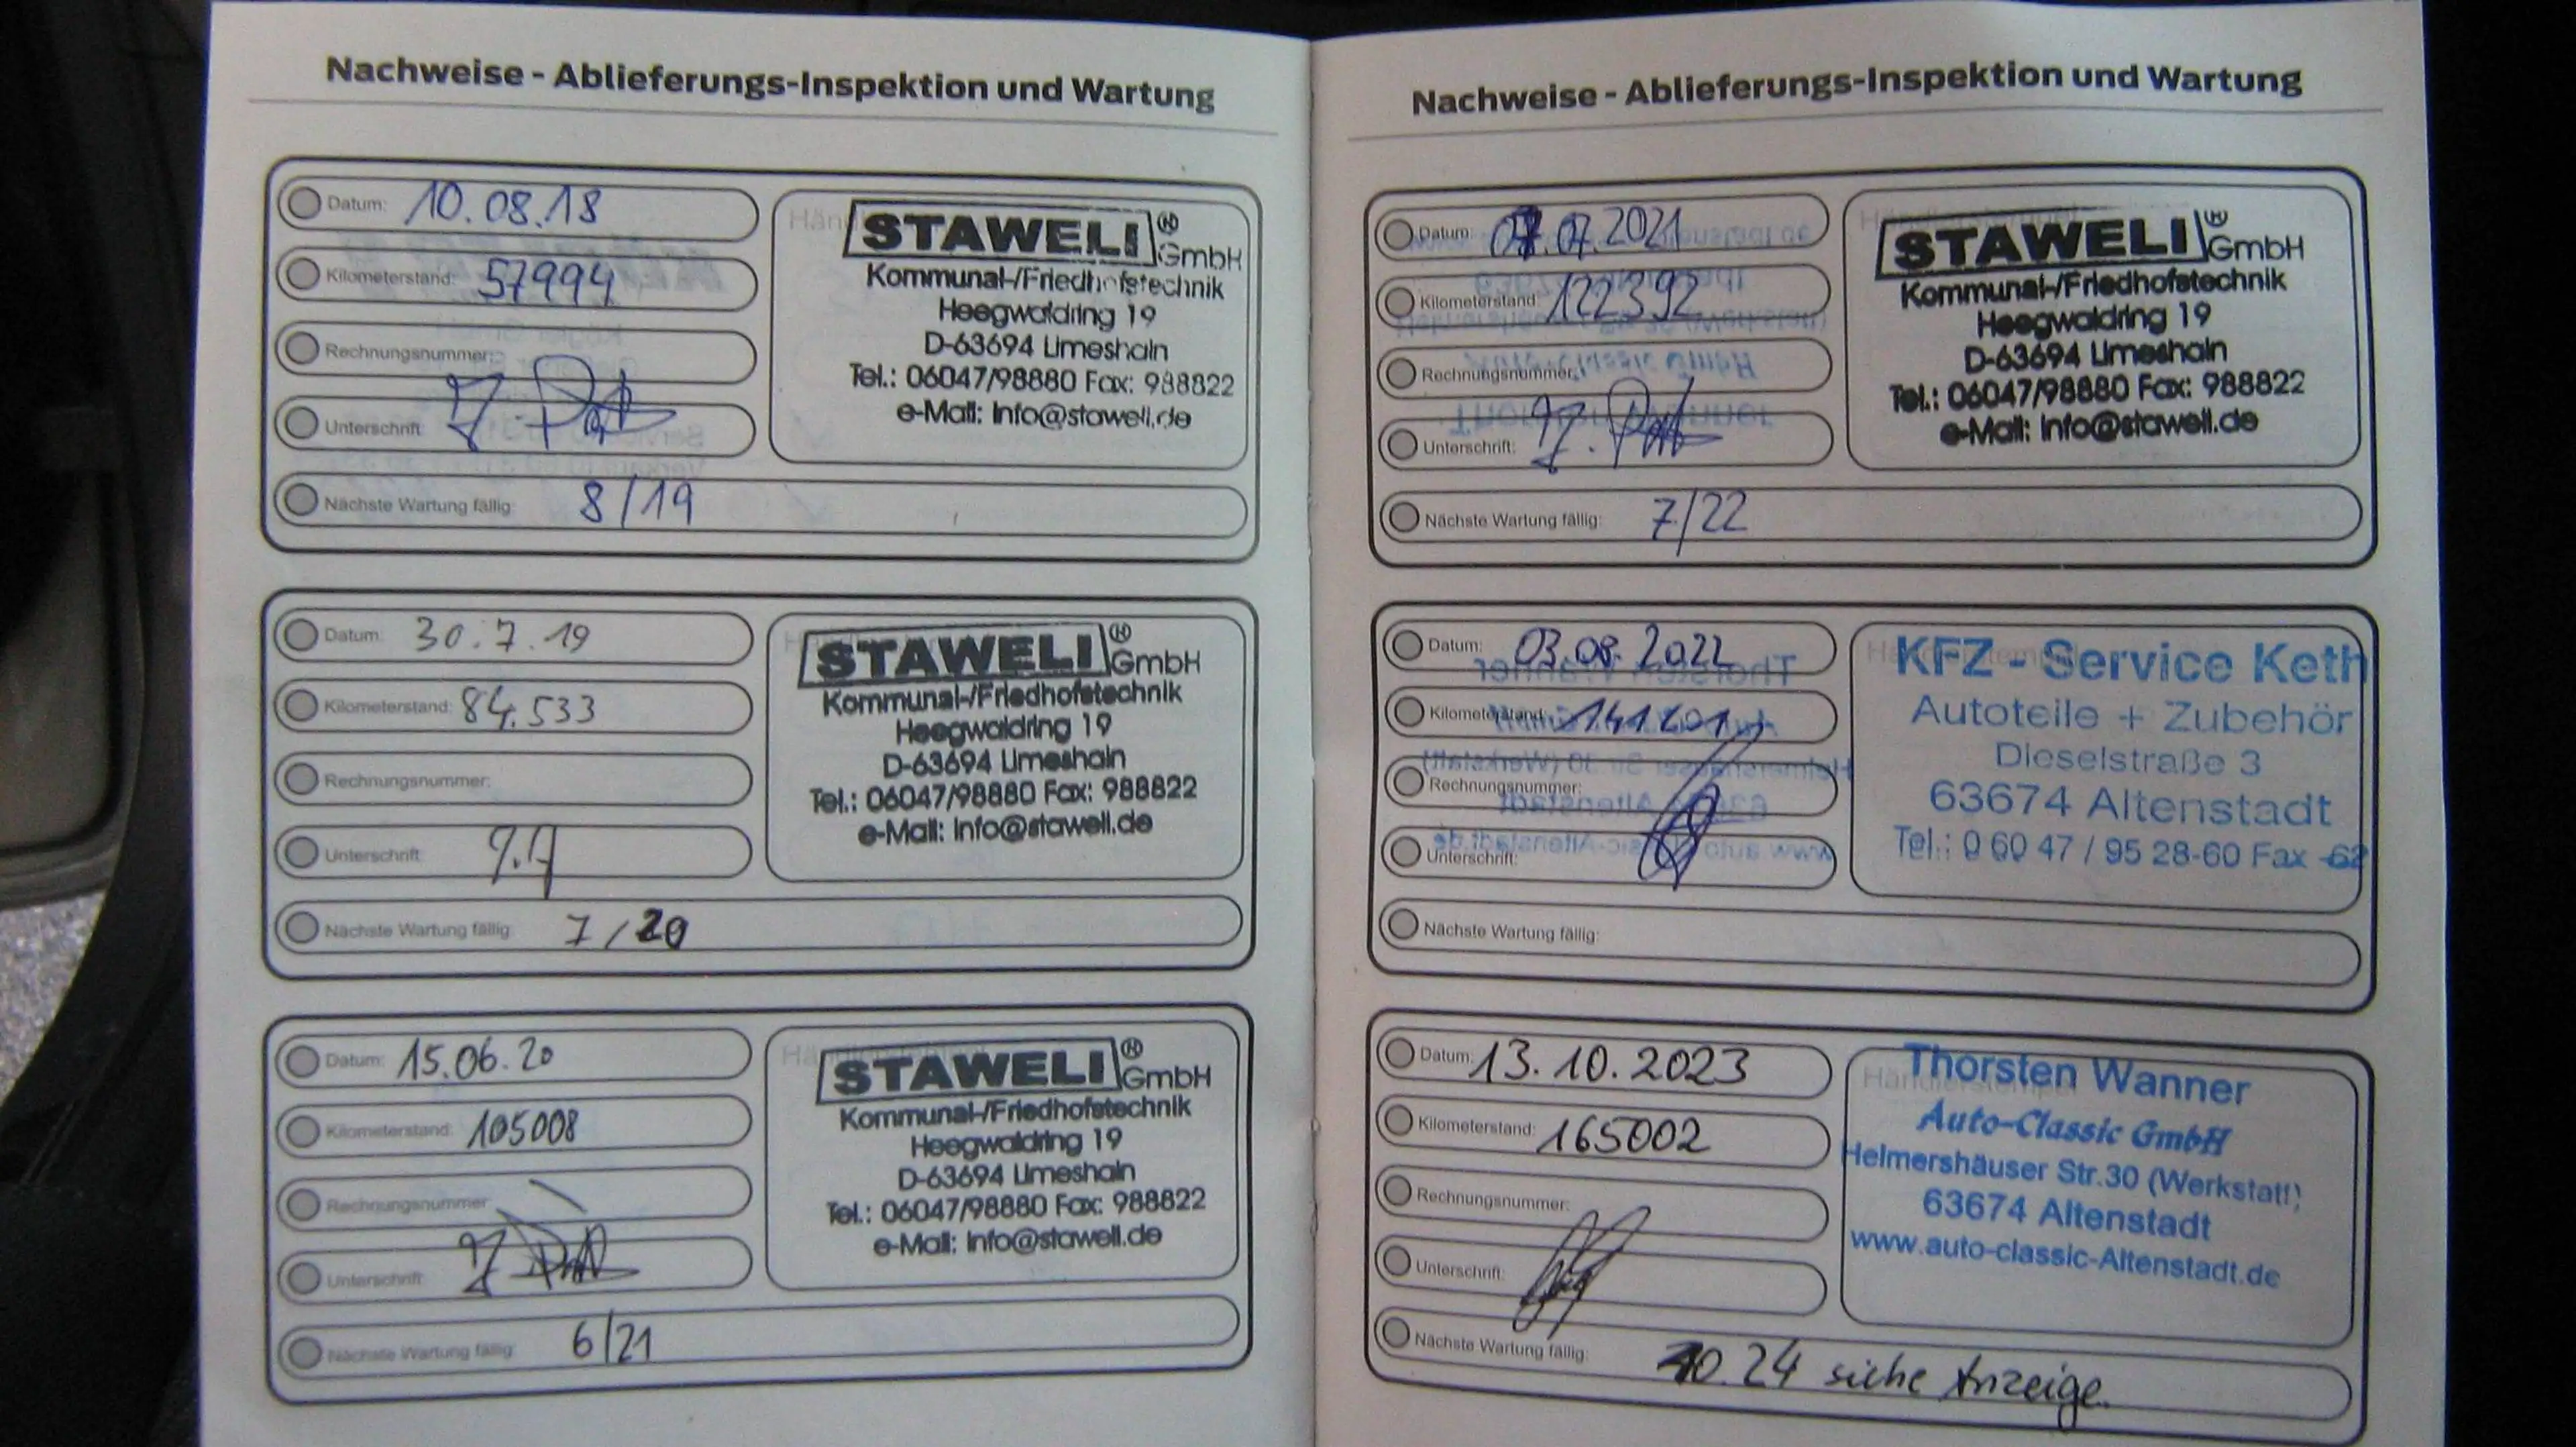 Nachweise - Ablieferungs-Inspektion und Wartung
Datum: 10.08.18
Kilometerstand: 57994
Rechnungsnummer:
Unterschrift:
Nächste Wartung fällig: 8/19
STAWELI® GmbH
Kommunal-/Friedhofstechnik
Heegwaldring 19
D-63694 Limeshain
Tel.: 06047/98880 Fax: 988822
e-Mail: info@staweli.de
Datum: 30.7.19
Kilometerstand: 84.533
Rechnungsnummer:
Unterschrift:
Nächste Wartung fällig: 7/20
STAWELI® GmbH
Kommunal-/Friedhofstechnik
Heegwaldring 19
D-63694 Limeshain
Tel.: 06047/98880 Fax: 988822
e-Mail: info@staweli.de
Datum: 15.06.20
Kilometerstand: 105008
Rechnungsnummer:
Unterschrift:
Nächste Wartung fällig: 6/21
STAWELI® GmbH
Kommunal-/Friedhofstechnik
Heegwaldring 19
D-63694 Limeshain
Tel.: 06047/98880 Fax: 988822
e-Mail: info@staweli.de
Nachweise - Ablieferungs-Inspektion und Wartung
Datum: 07.07.2021
Kilometerstand: 122392
Rechnungsnummer:
Unterschrift:
Nächste Wartung fällig: 7/22
STAWELI® GmbH
Kommunal-/Friedhofstechnik
Heegwaldring 19
D-63694 Limeshain
Tel.: 06047/98880 Fax: 988822
e-Mail: info@staweli.de
Datum: 03.08.2022
Kilometerstand: 141201
Rechnungsnummer:
Unterschrift:
Nächste Wartung fällig:
KFZ - Service Keth
Autoteile + Zubehör
Dieselstraße 3
63674 Altenstadt
Tel.: 0 60 47 / 95 28-60 Fax -62
Datum: 13.10.2023
Kilometerstand: 165002
Rechnungsnummer:
Unterschrift:
Nächste Wartung fällig: 10.24 siehe Anzeige.
Thorsten Wanner
Auto-Classic GmbH
Helmershäuser Str.30 (Werkstatt)
63674 Altenstadt
www.auto-classic-Altenstadt.de